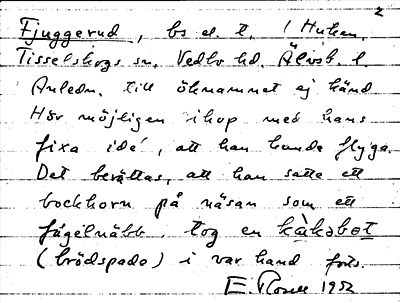 2
Fjuggerud, bs el. t. i Huken.
Tisselskogs sn. Vedbo hd. Älvsb. l.
Anledn. till öknamnet ej känd
Hör möjligen ihop med hans
fixa idé, att han kunde flyga.
Det berättas, att han satte ett
bockhorn på näsan som ett
fågelnäbb, tog en kàkabot
(brödspade) i var hand forts.
E. 1952